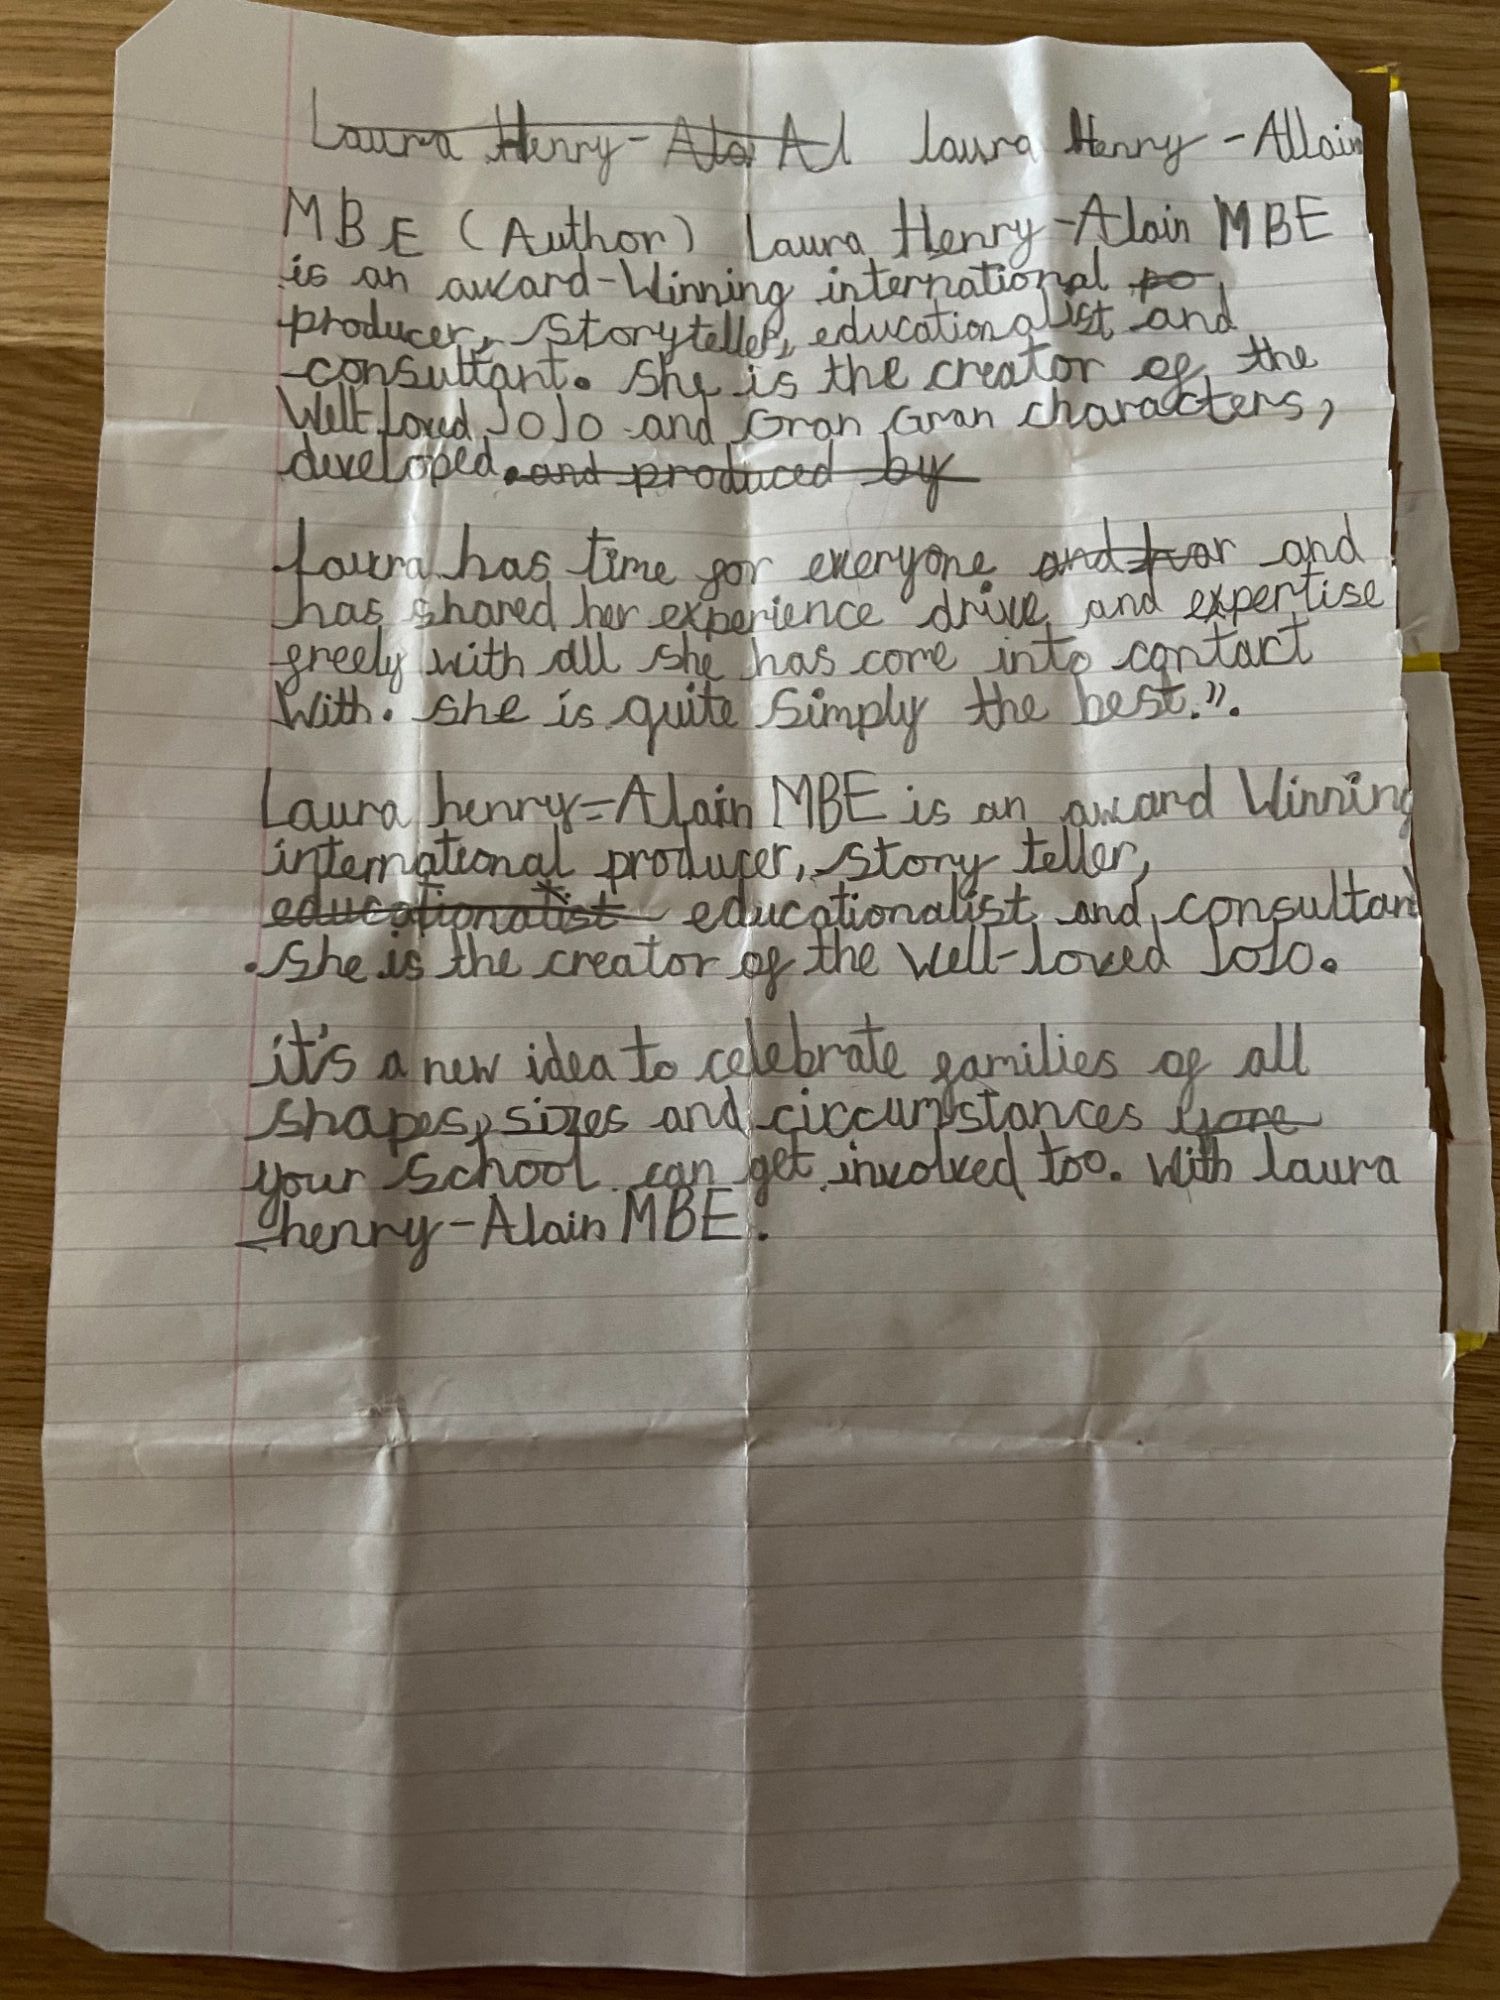 Laura Henry-Ala Al Laura Henry-Allain
MBE (Author) Laura Henry-Alain MBE
is an award-Winning international po
producer, storyteller, educationalist and
consultant. she is the creator of the
Well-loved JoJo and Gran Gran characters,
developed. and produced by
Laura has time for everyone and and
has shared her experience drive and expertise
greely with all she has come into contact
With. she is quite simply the best.”.
Laura henry=Alain MBE is an award Winning
international producer, story teller,
educationalist educationalist and consultant
. She is the creator of the well-loved JoJo.
it's a new idea to celebrate families of all
shapes, sizes and circcumstances
your school can get involved too. With laura
henry-Alain MBE.